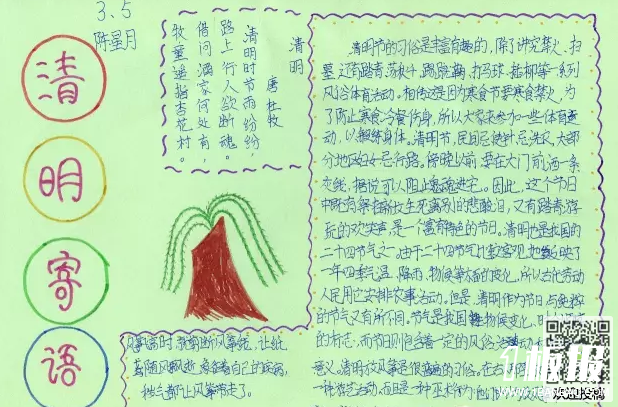 3、5
陈星月
清
明
寄
语
清明
唐 杜牧
清明时节雨纷纷，
路上行人欲断魂。
借问酒家何处有，
牧童遥指杏花村。
清明节的习俗是丰富有趣的，除了讲究禁火、扫
墓，还有踏青、荡秋千、蹴鞠、打马球、插柳等一系列
风俗体育活动。相传这是因为寒食节要寒食禁火，为
了防止寒食冷餐伤身，所以大家来参加一些体育活
动，以锻练身体。清明节，民间忌使针，忌洗衣，大部
分地区妇女忌行路。傍晚以前，要在大门前洒一条
灰线，据说可以阻止鬼魂进宅。因此，这个节日
中既有祭扫新坟生死离别的悲酸泪，又有踏青游
玩的欢笑声，是一个富有特色的节日。清明也是我国的
二十四节气之一。由于二十四节气比较客观地反映了
一年四季气温、降雨、物候等方面的变化，所以古代劳动
人民用它安排农事活动。但是，清明作为节日，与
的节气又有所不同。节气是我国物候变化、
的标志，而节日则包含着一定的风俗活动
意义。清明放风筝是很 的习俗。在古
一种游艺活动，而且是一种巫术行为，他们
风筝时 剪断风筝线，让纸
鸢随风飘逝，象征着自己的疾病、
秽气都让风筝带走了。
板报
欢迎投稿